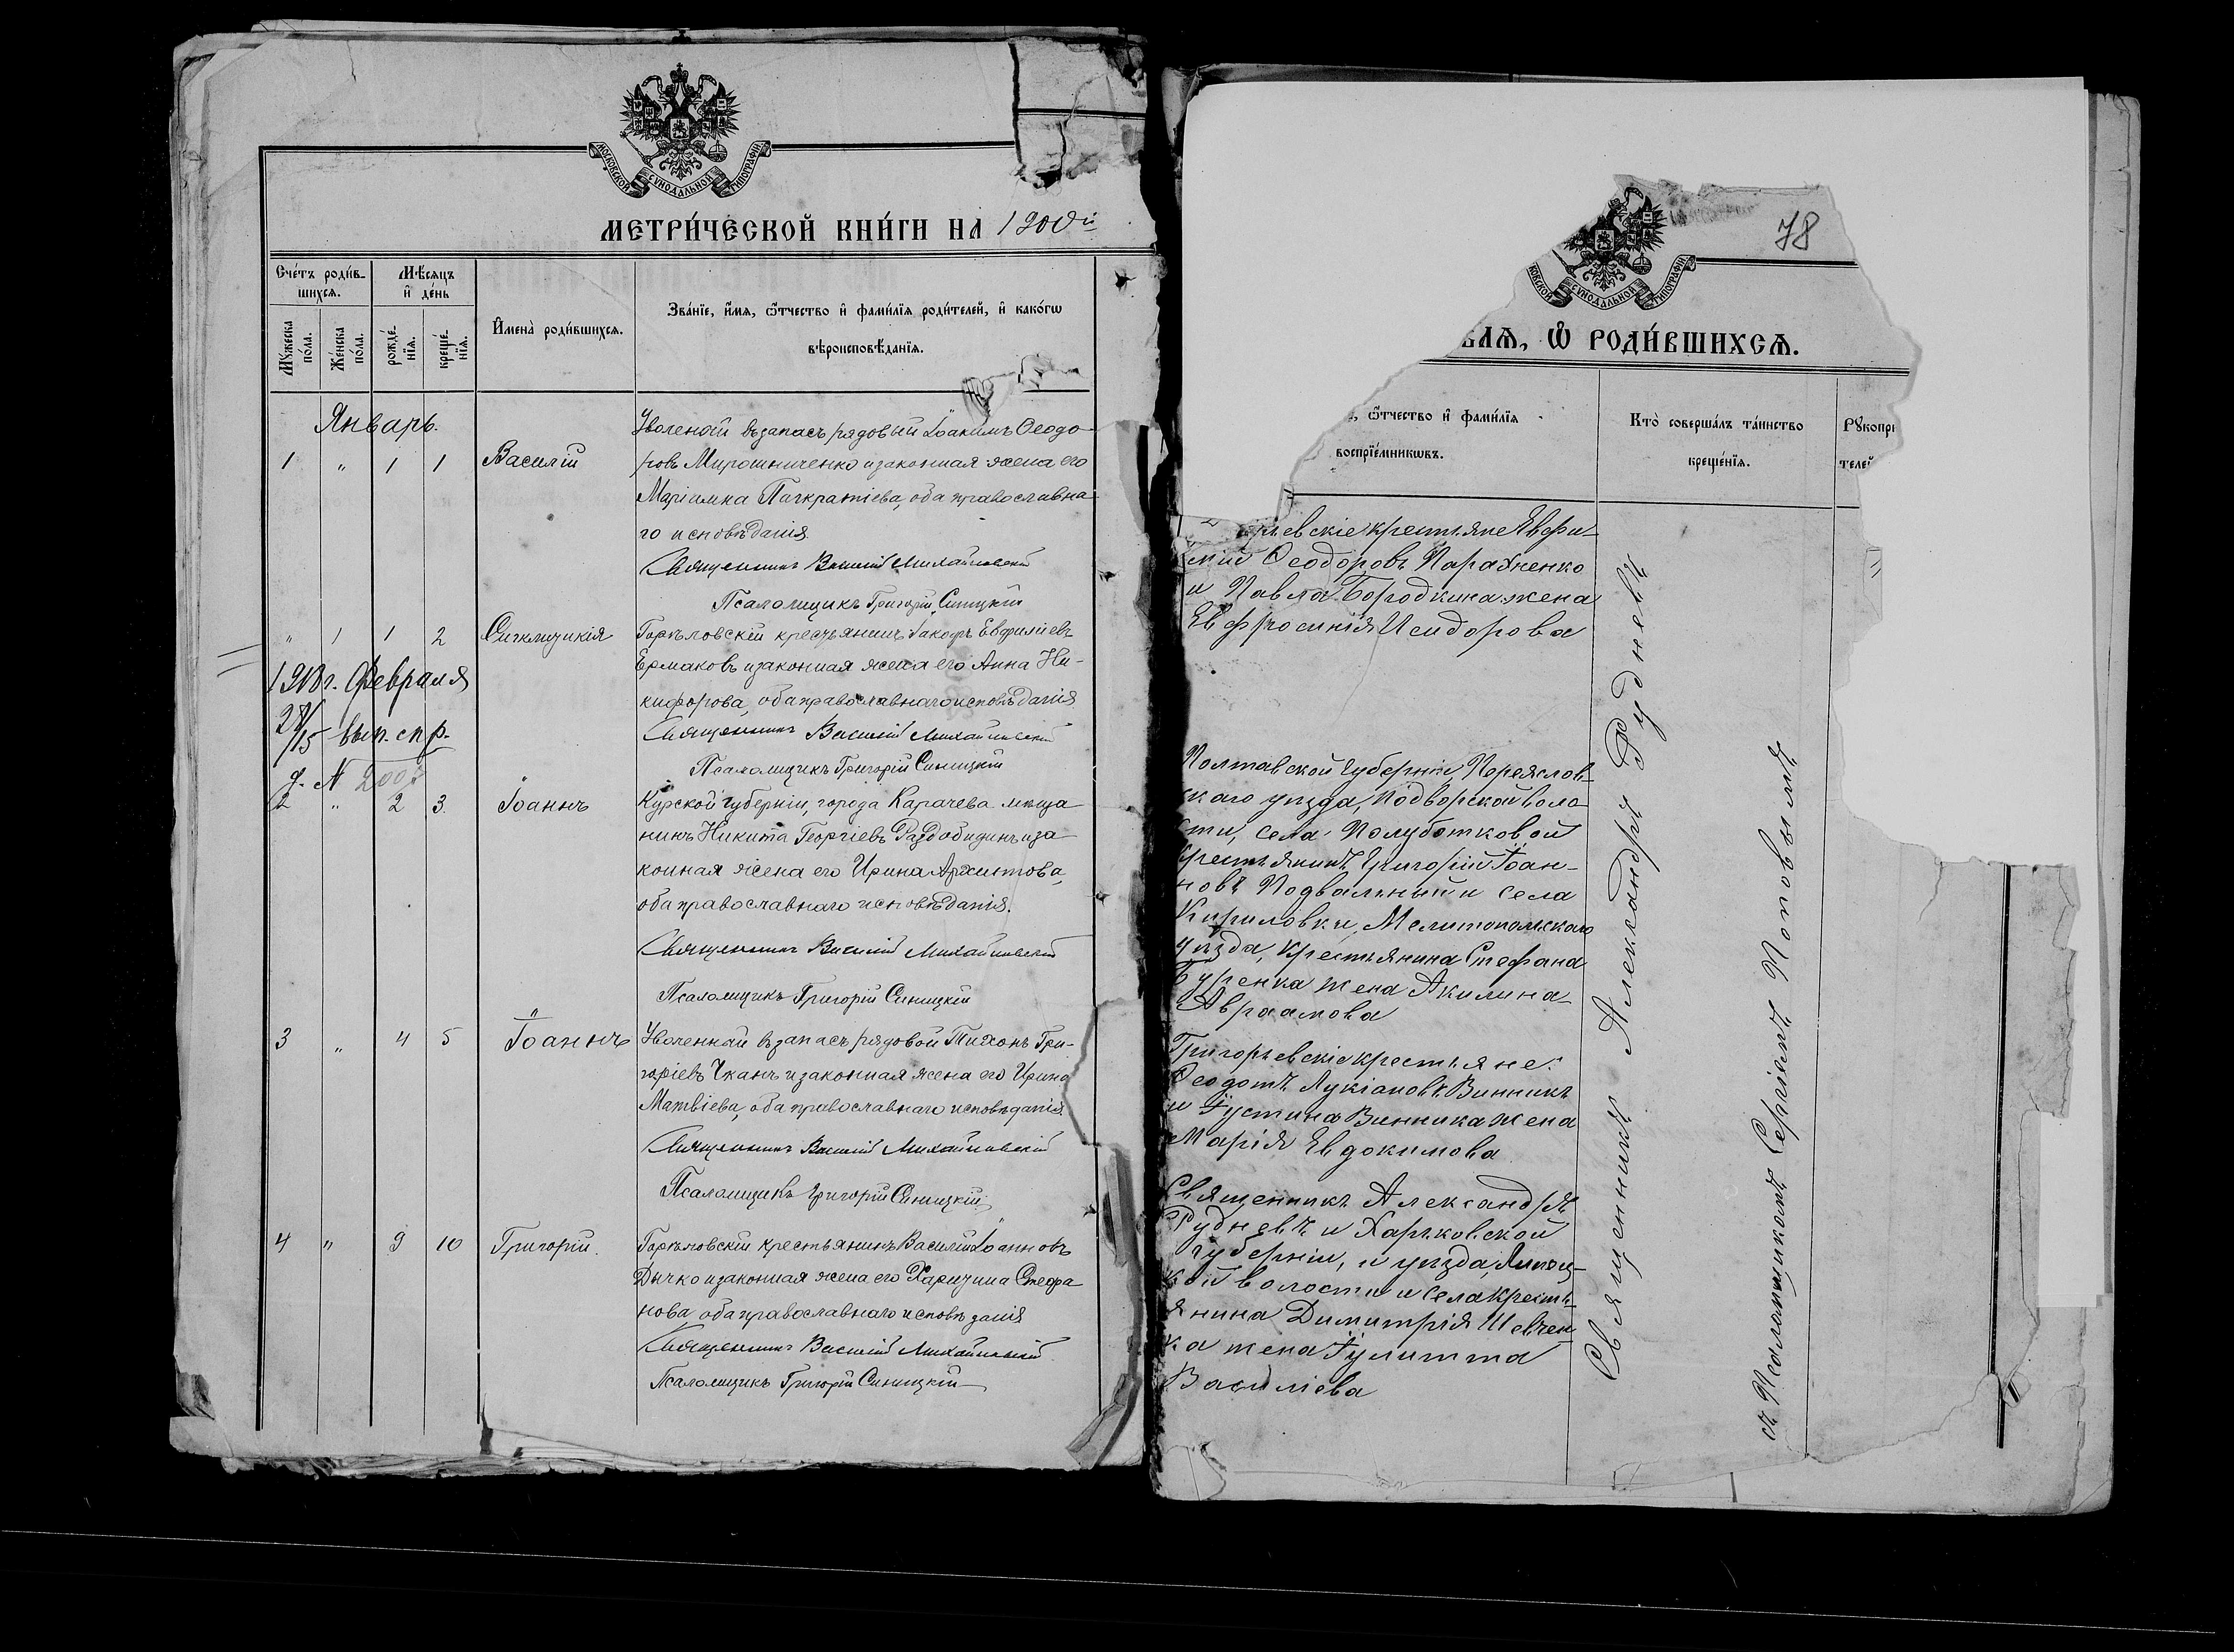 МОСКОВСКОЙ СѴНОДАЛЬНОЙ ТИПОГРАФІИ
МЕТРИ́ЧЕСКОЙ КНИ́ГИ НА 1900й
Сче́тъ роди́в-
шихсѧ.
Мѣ́сѧцъ
и҆ де́нь
И҆мена̀ роди́вшихсѧ.
Зва́нїе, и҆́мѧ, ѻ҆́тчество и҆ фами́лїѧ роди́телей, и҆ како́гѡ
вѣроисповѣ́данїѧ.
Мꙋ́жеска
по́ла.
Же́нска
по́ла.
рожде́-
нїѧ.
креще́-
нїѧ.
Январь.
Уволеной въ запасъ рядовый Іоакимъ Ѳеодо-
1 " 1 1 Василій ровъ Мирошниченко и законная жена его
Маріамна Панкратіева, оба православна-
го исповѣданія.
Священникъ Василій Михайловскій
Псаломщикъ Григорій Синицкій
" 1 1 2 Синклитикія Горѣловскій крестьянинъ Іаковъ Евфиміевъ
1918 г. Февраля Ермаковъ и законная жена его Анна Ни-
кифорова, оба православнаго исповѣданія
28/15 вып. спр. Священникъ Василій Михайловскій
Псаломщикъ Григорій Синицкій
д. N 200
2 " 2 3 Іоаннъ Курской губерніи, города Карачева мѣща-
нинъ Никита Георгіевъ Раздобидинъ и за-
конная жена его Ирина Архиптова,
оба православнаго исповѣданія.
Священникъ Василій Михайловскій
Псаломщикъ Григорій Синицкій
3 " 4 5 Іоаннъ Уволенной въ запасъ рядовой Тихонъ Гри-
горіевъ Чканъ и законная жена его Ирина
Матвіева, оба православнаго исповѣданія.
Священникъ Василій Михайловскій
Псаломщикъ Григорій Синицкій
4 " 9 10 Григорій. Горѣловскій крестьянинъ Василій Іоанновъ
Дычко и законная жена его Харитина Стефа-
нова, оба православнаго исповѣданія
Священникъ Василій Михайловскій
Псаломщикъ Григорій Синицкій
78
КОВСКОЙ СѴНОДАЛЬНОЙ ТИПОГРАФІИ
ВАѦ, Ѡ҆ РОДИ́ВШИХСѦ.
, ѻ҆́тчество и҆ фами́лїѧ
воспрїе́мникѡвъ.
Кто̀ соверша́лъ та́инство
креще́нїѧ.
Рꙋкопри
телей
рьевскіе крестьяне Евфи-
мій Ѳеодоровъ Парахненко
и Павла Бородкина жена
Евфросинія Исидорова
Полтавской губерніи, Переяслов-
скаго уѣзда, Подворской воло-
сти, села Полуботковой
крестьянинъ Григорій Іоан-
новъ Подвальный и села
Кириловки, Мелитопольскаго
уѣзда, крестьянина Стефана
Буренка жена Акилина
Авраамова
Григорьевскіе крестьяне:
Ѳеодотъ Лукіановъ Винникъ
и Іустина Винника жена
Марія Евдокимова
Священникъ Александръ
Рудневъ и Харьковской
губерніи, и уѣзда, Липец-
кой волости и села кресть-
янина Димитрія Шевчен-
ка жена Іулитта
Василіева
Священникъ Александръ Рудневъ
съ Псаломщикомъ Сергіемъ Поповымъ